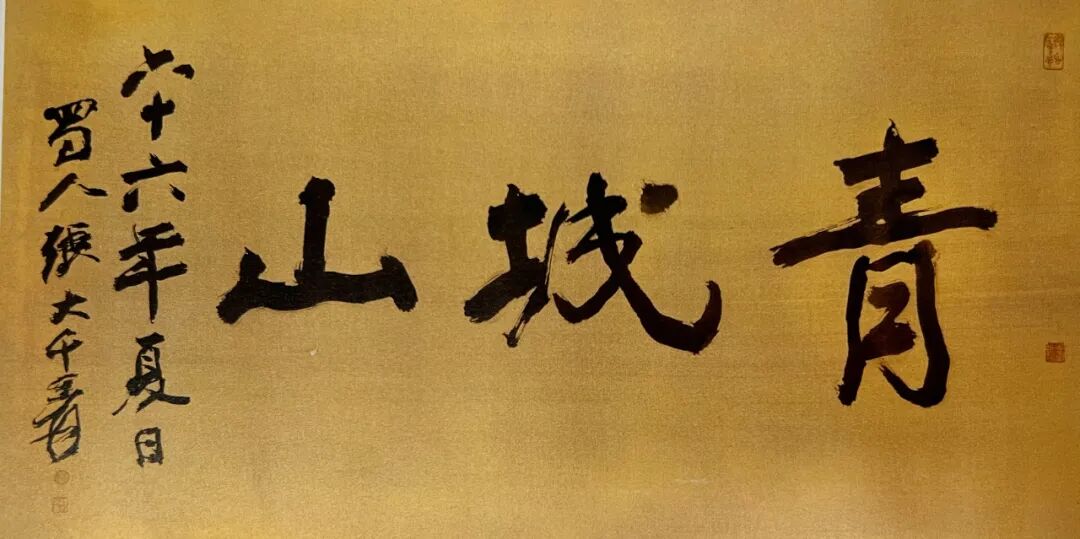 青城山
六十六年夏日
蜀人張大千爰